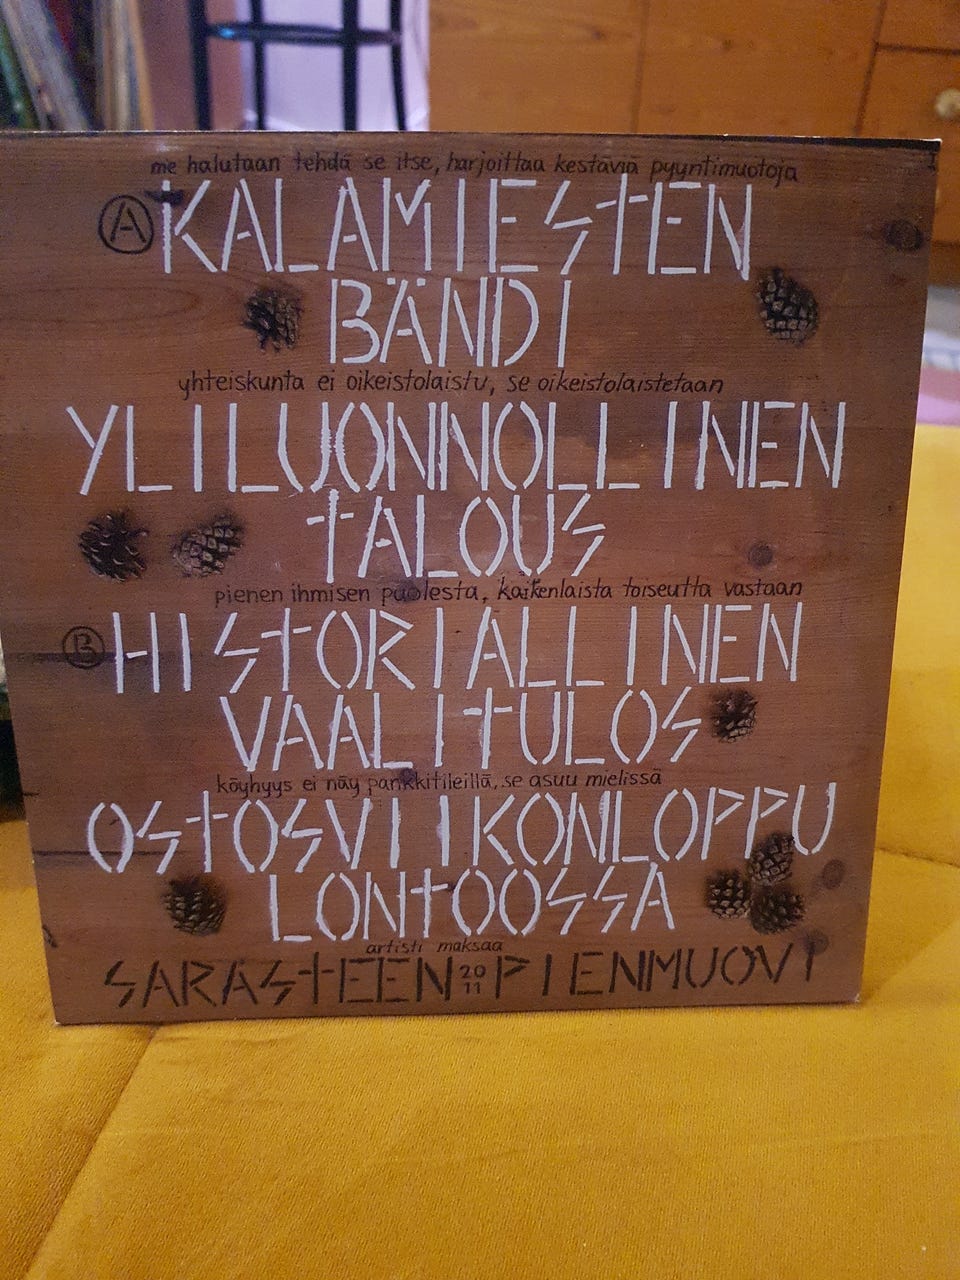 me halutaan tehdä se itse, harjoittaa kestäviä pyyntimuotoja
A KALAMIESTEN
BÄNDI
yhteiskunta ei oikeistolaistu, se oikeistolaistetaan
YLILUONNOLLINEN
TALOUS
pienen ihmisen puolesta, kaikenlaista toiseutta vastaan
B HISTORIALLINEN
VAALITULOS
köyhyys ei näy pankkitileillä, se asuu mielissä
OSTOSVIIKONLOPPU
LONTOOSSA
artisti maksaa
SARASTEEN 2011 PIENMUOVI